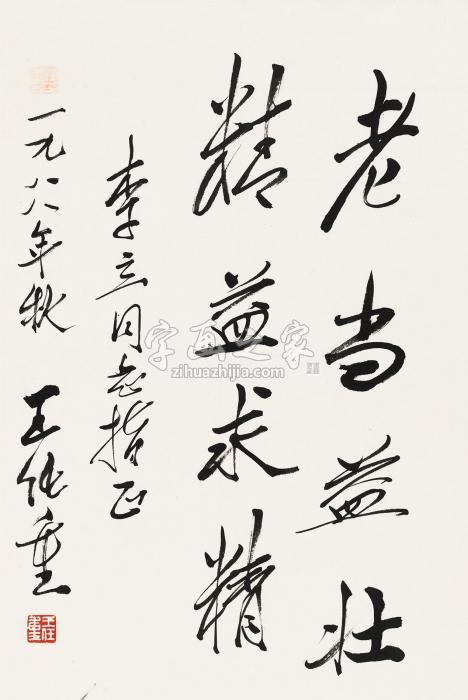 老当益壮
精益求精
李立同志指正
一九八八年秋 王任重
王任重
字画之家
zihuazhijia.com